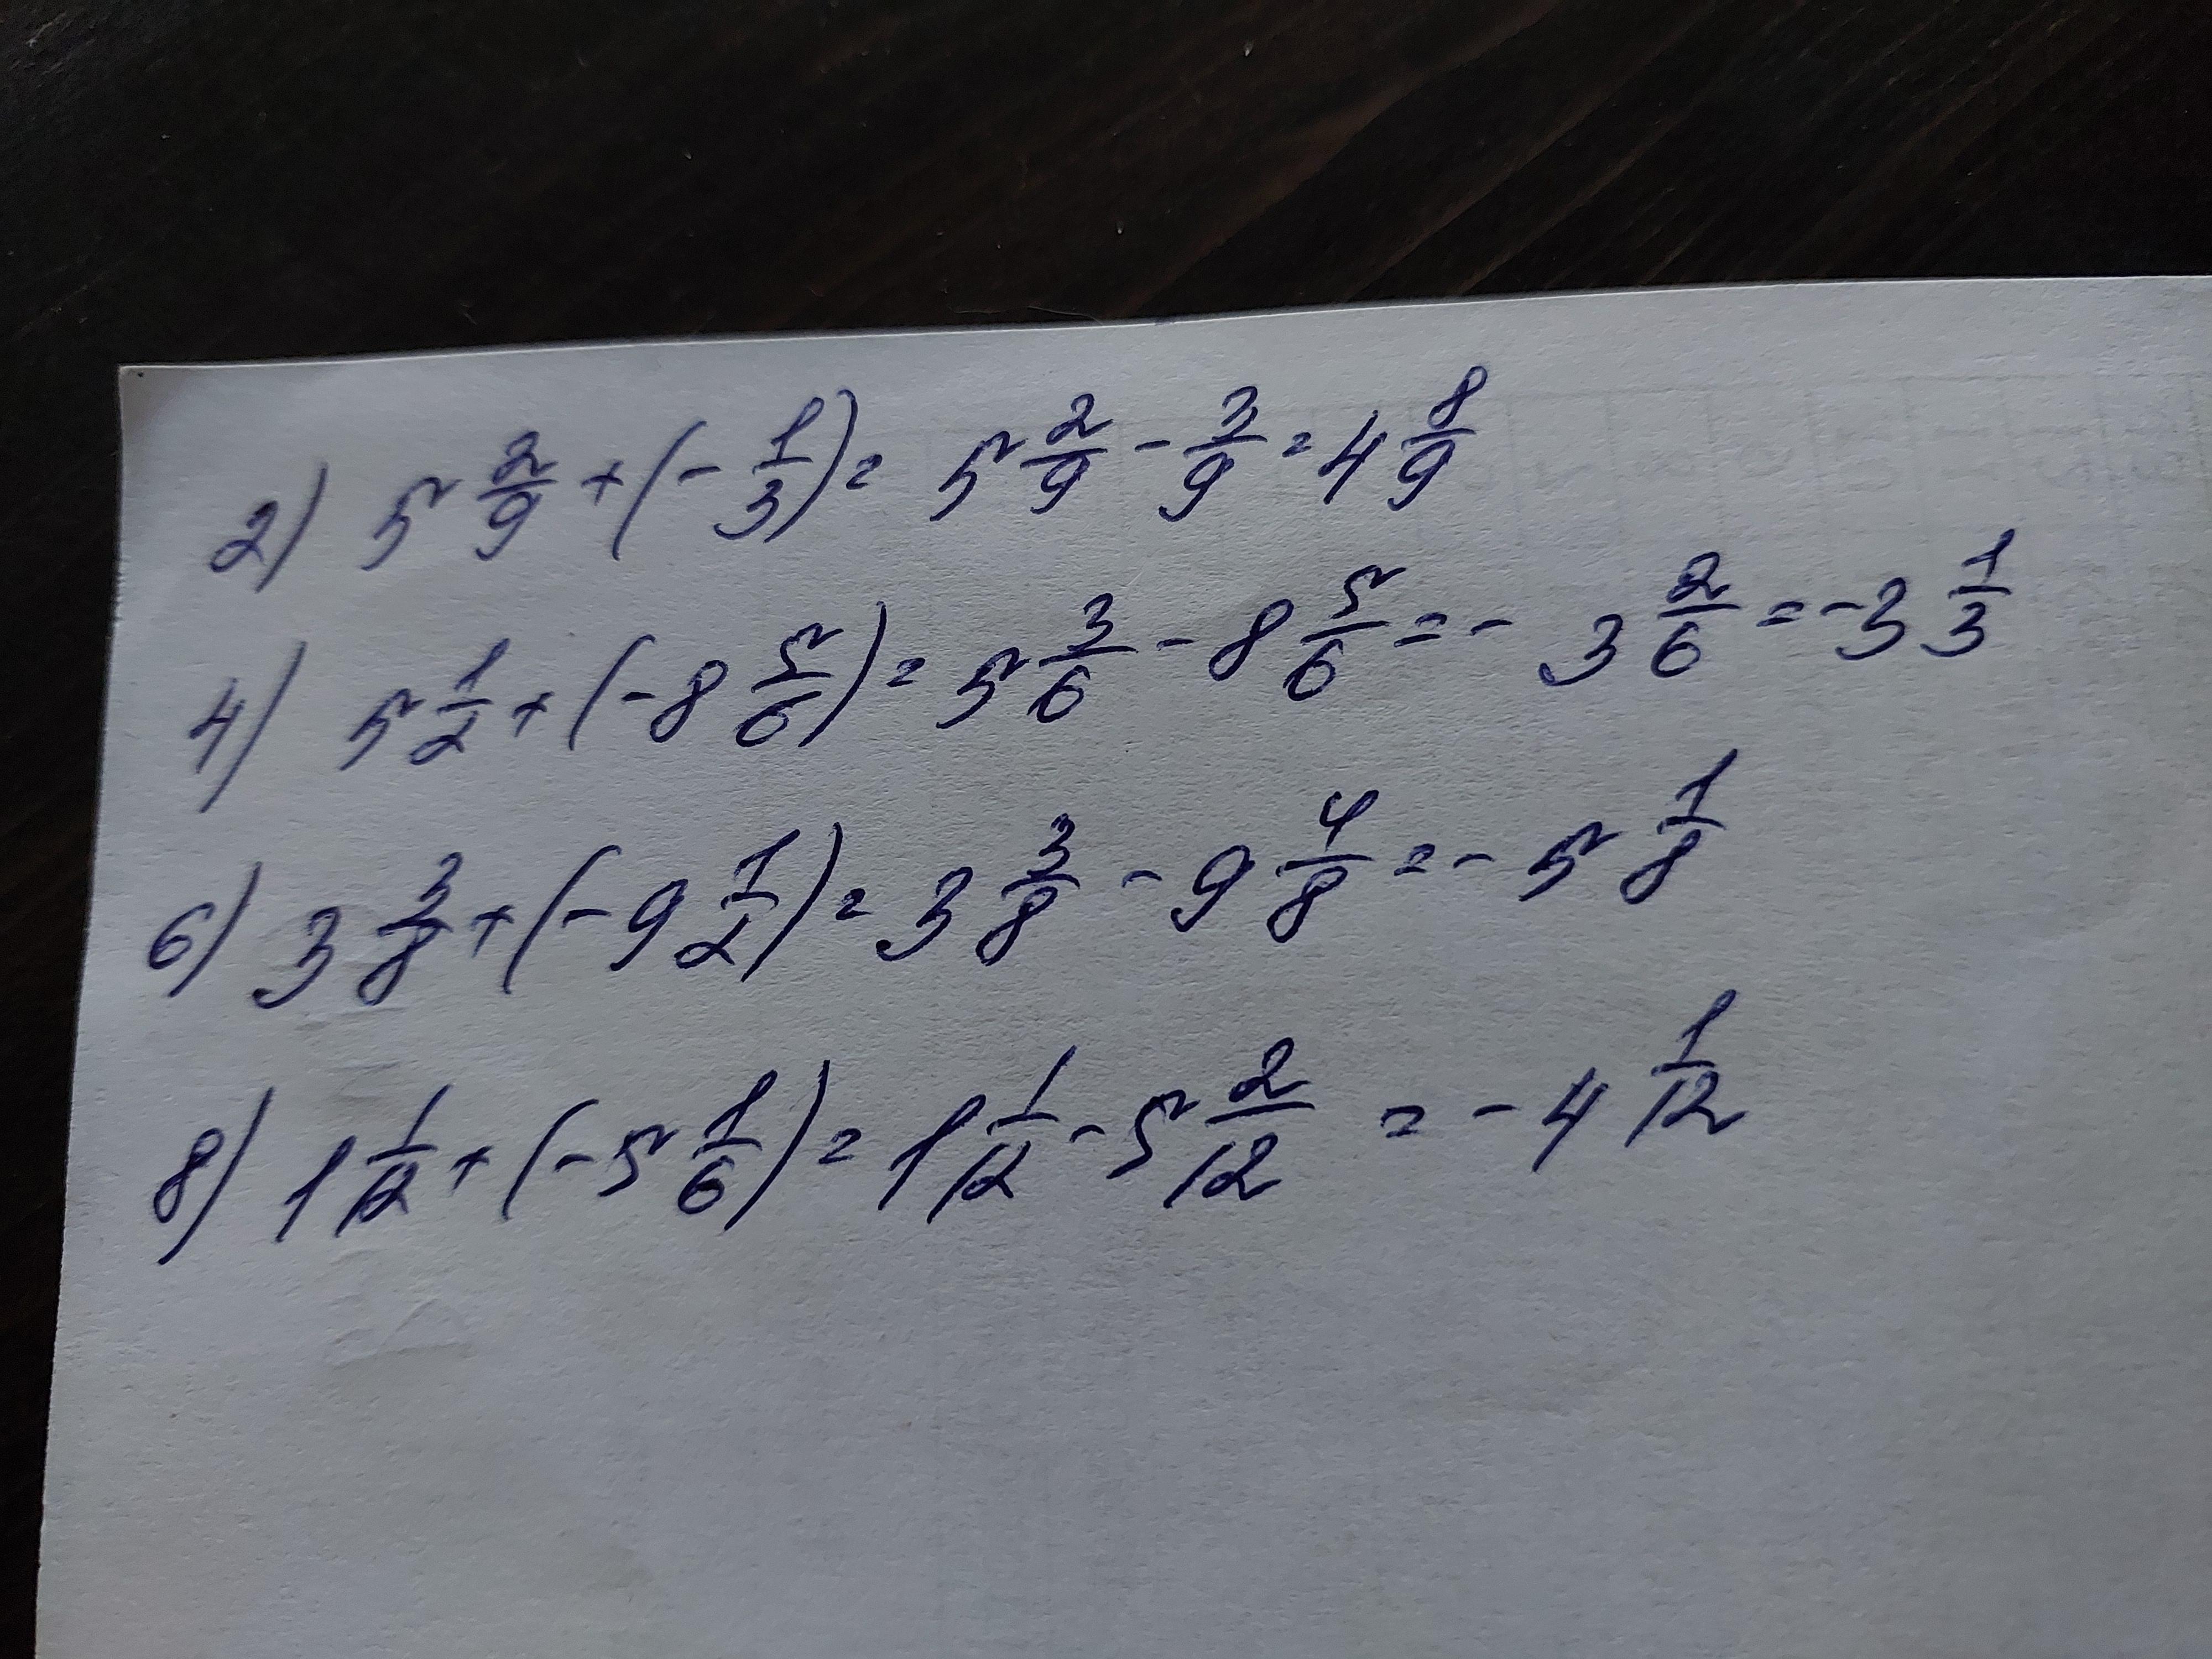 2) 5 2/9 + (- 1/3) = 5 2/9 - 3/9 = 4 8/9
4) 5 1/2 + (-8 5/6) = 5 3/6 - 8 5/6 = - 3 2/6 = -3 1/3
6) 3 3/8 + (-9 1/2) = 3 3/8 - 9 4/8 = - 5 1/8
8) 1 1/12 + (-5 1/6) = 1 1/12 - 5 2/12 = - 4 1/12